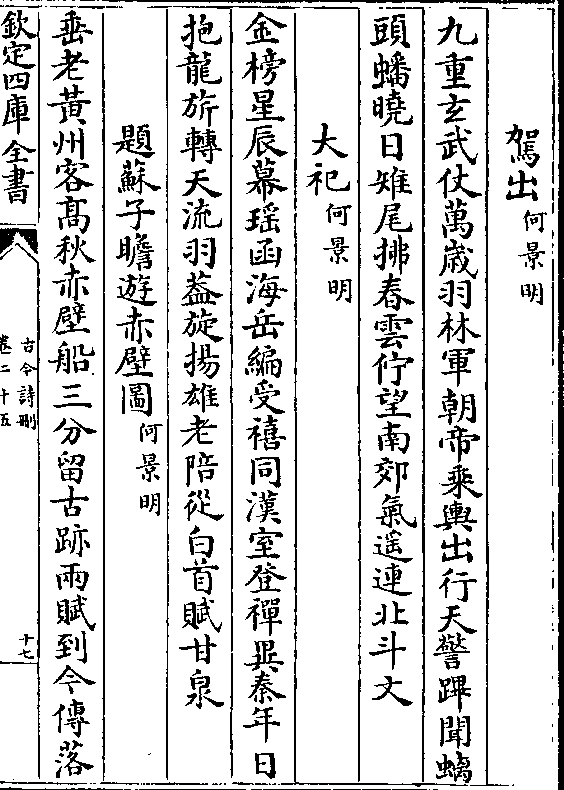 駕出何景明
九重玄武仗萬歲羽林軍朝帝乘輿出行天警蹕聞螭
頭蟠曉日雉尾拂春雲佇望南郊氣遥連北斗文
大祀何景明
金榜星辰幕瑶函海岳編受禧同漢室登禪異秦年日
抱龍旂轉天流羽葢旋揚雄老陪從白首賦甘泉
題蘇子瞻遊赤壁圖何景明
垂老黃州客高秋赤壁船三分留古跡兩賦到今傳落
欽定四庫全書
古今詩刪
卷二十五
十七